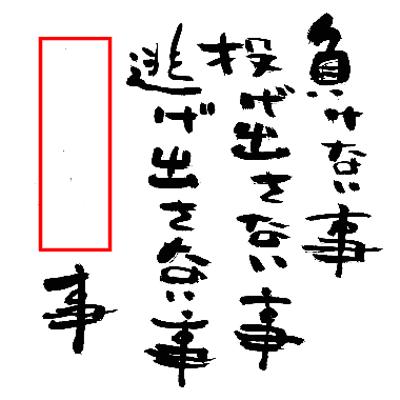 負けない事
投げ出さない事
逃げ出さない事
事